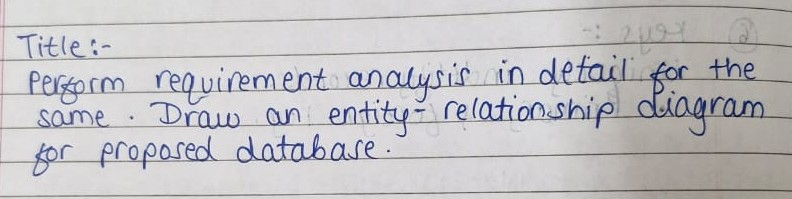 Title:-
Perform requirement analysis in detail for the
same. Draw an entity-relationship diagram
for proposed database.